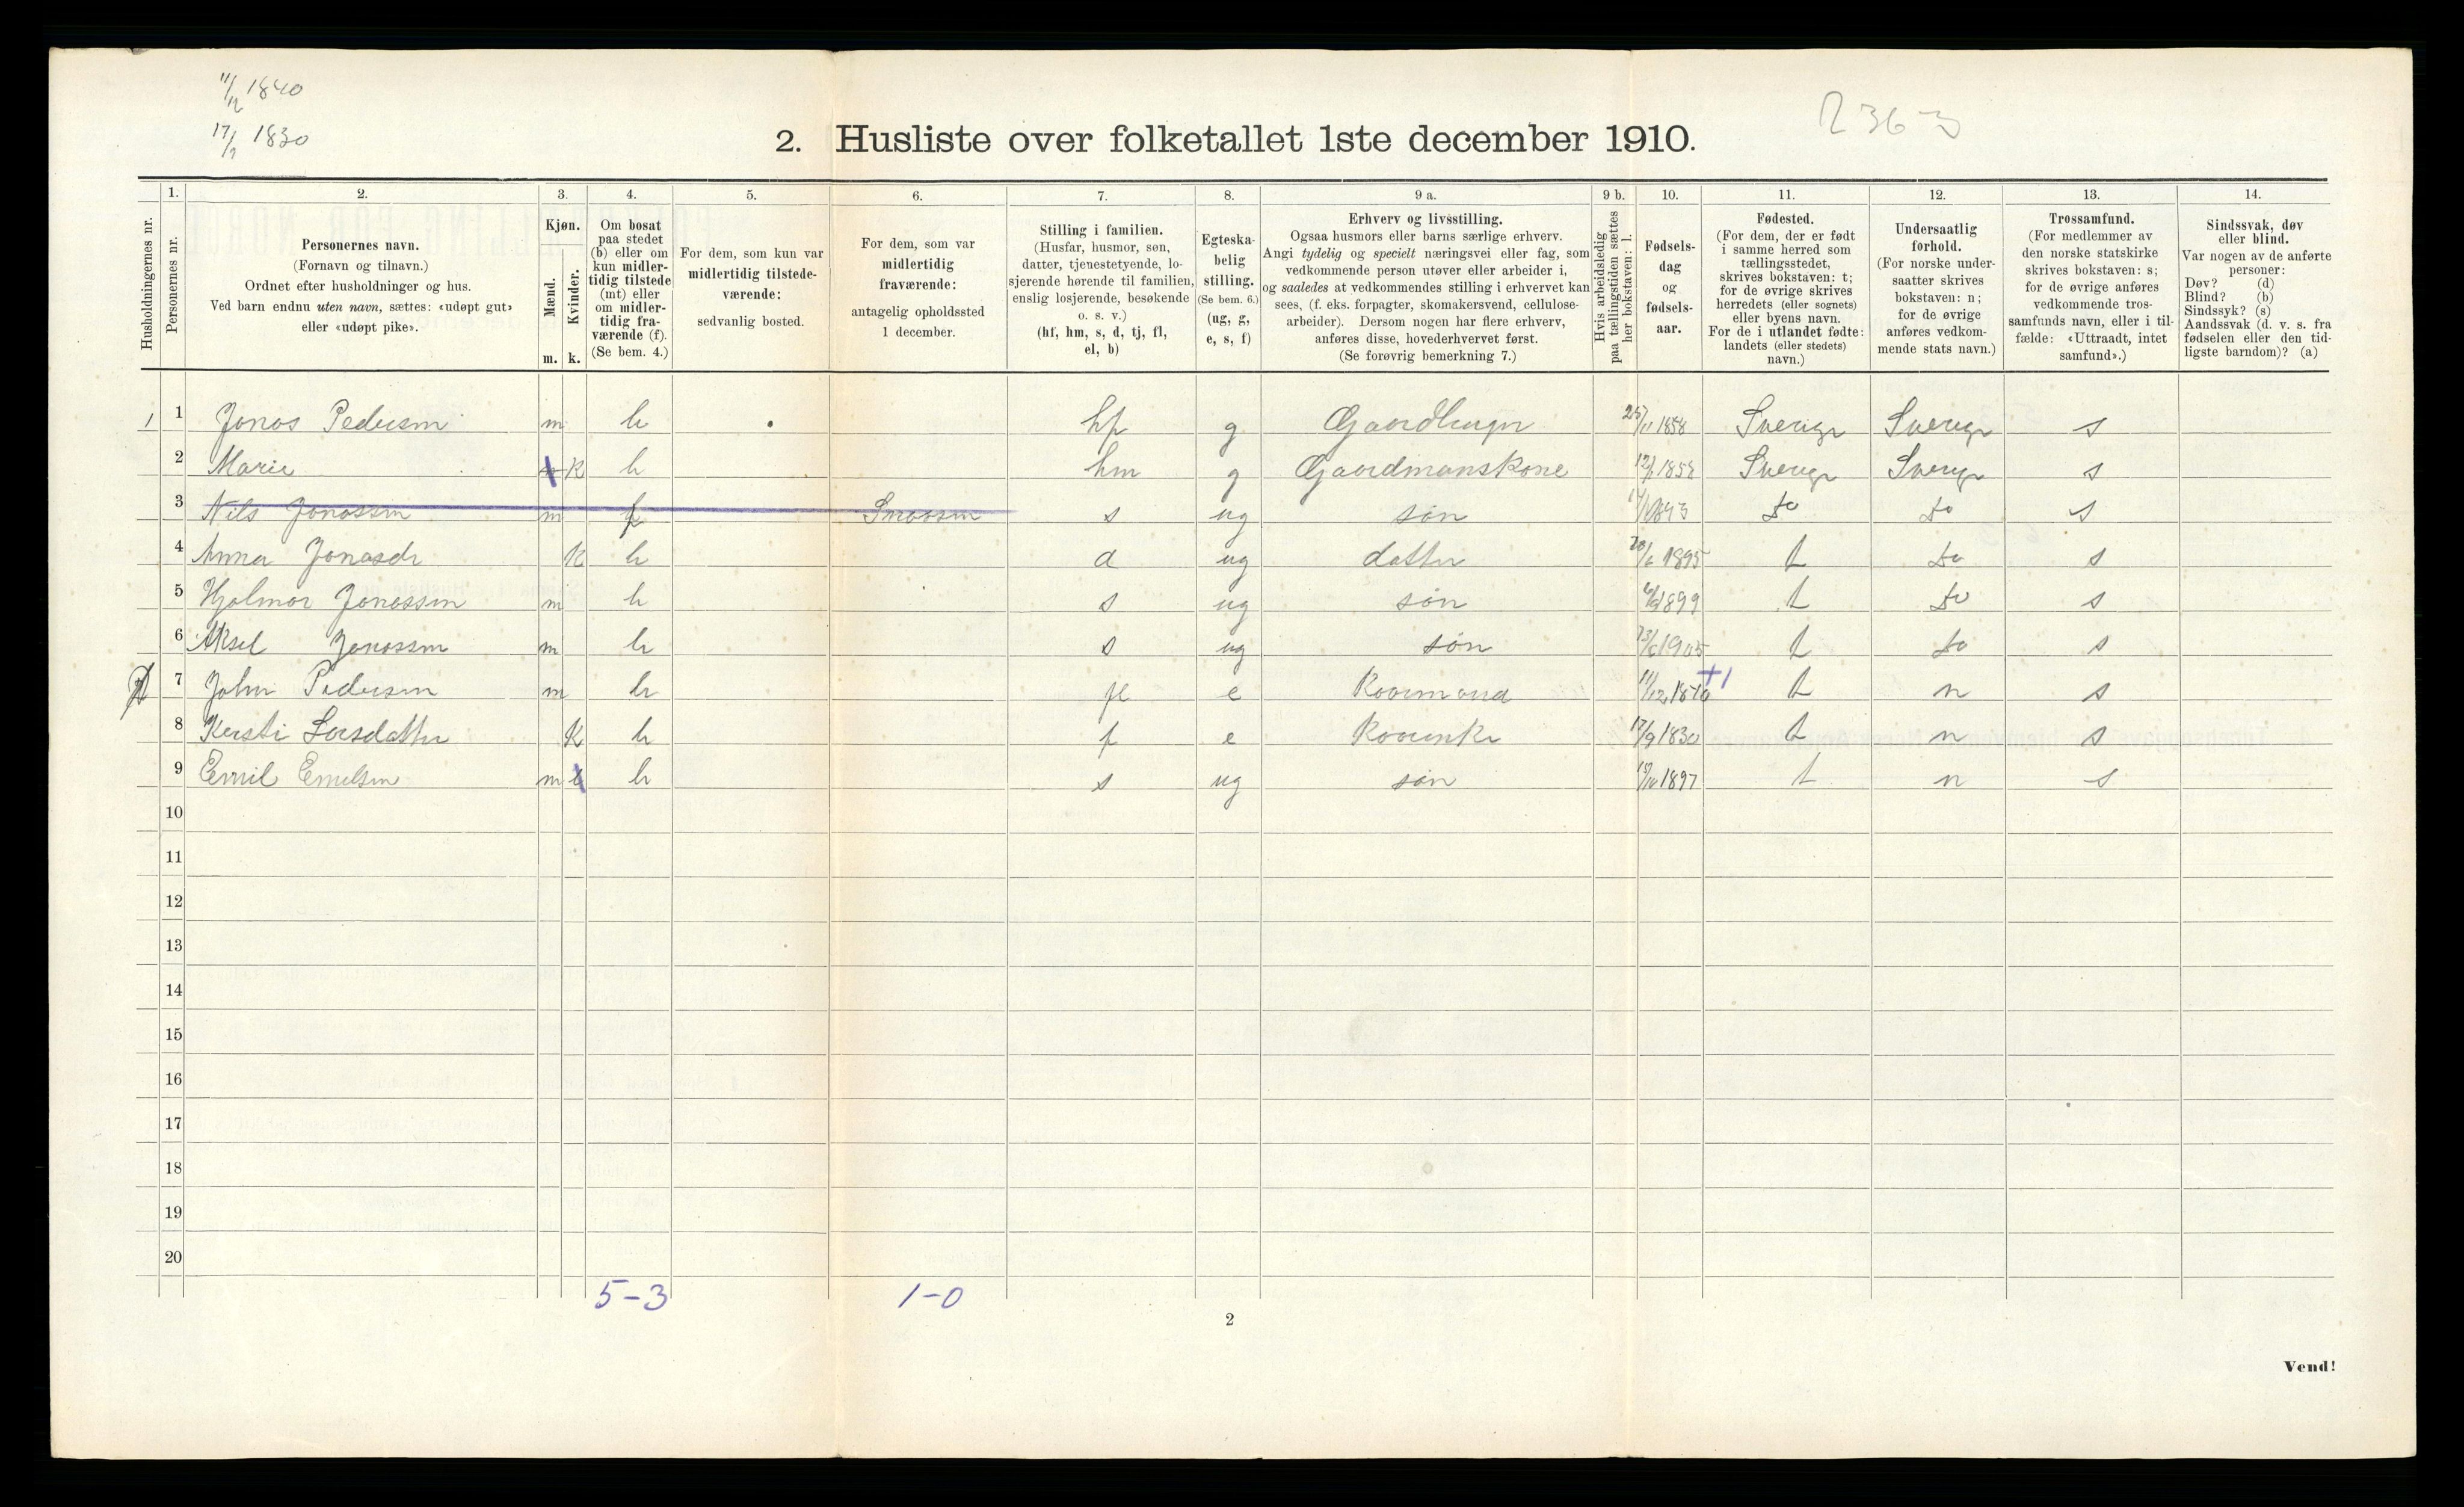 11/12 1840
17/9 1830
2. Husliste over folketallet 1ste december 1910.
Husholdningernes nr.
1. Personernes nr.
2. Personernes navn. (Fornavn og tilnavn.) Ordnet efter husholdninger og hus. Ved barn endnu uten navn, sættes: «udøpt gut» eller «udøpt pike».
3. Kjøn. Mænd. m. Kvinder. k.
4. Om bosat paa stedet (b) eller om kun midlertidig tilstede (mt) eller om midlertidig fraværende (f). (Se bem. 4.)
5. For dem, som kun var midlertidig tilstedeværende: sedvanlig bosted.
6. For dem, som var midlertidig fraværende: antagelig opholdssted 1 december.
7. Stilling i familien. (Husfar, husmor, søn, datter, tjenestetyende, losjerende hørende til familien, enslig losjerende, besøkende o. s. v.) (hf, hm, s, d, tj, fl, el, b)
8. Egteskabelig stilling. (Se bem. 6.) (ug, g, e, s, f)
9 a. Erhverv og livsstilling. Ogsaa husmors eller barns særlige erhverv. Angi tydelig og specielt næringsvei eller fag, som vedkommende person utøver eller arbeider i, og saaledes at vedkommendes stilling i erhvervet kan sees, (f. eks. forpagter, skomakersvend, cellulosearbeider). Dersom nogen har flere erhverv, anføres disse, hovederhvervet først. (Se forøvrig bemerkning 7.)
9 b. Hvis arbeidsledig paa tællingstiden sættes her bokstaven: l.
10. Fødselsdag og fødselsaar.
11. Fødested. (For dem, der er født i samme herred som tællingsstedet, skrives bokstaven: t; for de øvrige skrives herredets (eller sognets) eller byens navn. For de i utlandet fødte: landets (eller stedets) navn.)
12. Undersaatlig forhold. (For norske undersaatter skrives bokstaven: n; for de øvrige anføres vedkommende stats navn.)
13. Trossamfund. (For medlemmer av den norske statskirke skrives bokstaven: s; for de øvrige anføres vedkommende trossamfunds navn, eller i tilfælde: «Uttraadt, intet samfund».)
14. Sindssvak, døv eller blind. Var nogen av de anførte personer: Døv? (d) Blind? (b) Sindssyk? (s) Aandssvak (d. v. s. fra fødselen eller den tidligste barndom)? (a)
1 1 Jonas Pedersen m b hf g Gaardbruger 25/11 1858 Sverige Sverige s
2 Marie K b hm g Gaardmanskone 1858 Sverige Sverige s
3 Nils Jonassen m f s ug søn do do s
4 Anna Jonasdr K b d ug datter 1895 t do s
5 Hjalmar Jonassen m b s ug søn 1899 t do s
6 Aksel Jonassen m b s ug søn 1905 t do s
7 John Pedersen m b fl e Kaarmand 11/12 1840 t n s
8 Kersti Larsdatter K b f e Kaarenke 17/9 1830 t n s
9 Emil Emilsen m b s ug søn 1897 t n s
10
11
12
13
14
15
16
17
18
19
20
5-3 1-0
2
Vend!